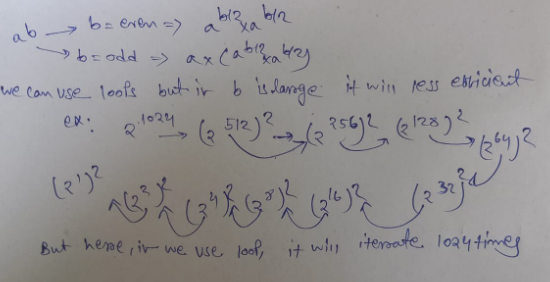 ab → b = even => a^b/2 × a^b/2
→ b = odd => a × (a^b/2 × a^b/2)
we can use loops but if b is large it will less efficient
ex: 2^1024 → (2^512)^2 → (2^256)^2 (2^128)^2 (2^64)^2
(2^1)^2 (2^2)^2 (2^4)^2 (2^8)^2 (2^16)^2 (2^32)^2
But here, if we use loop, it will iterate 1024 times